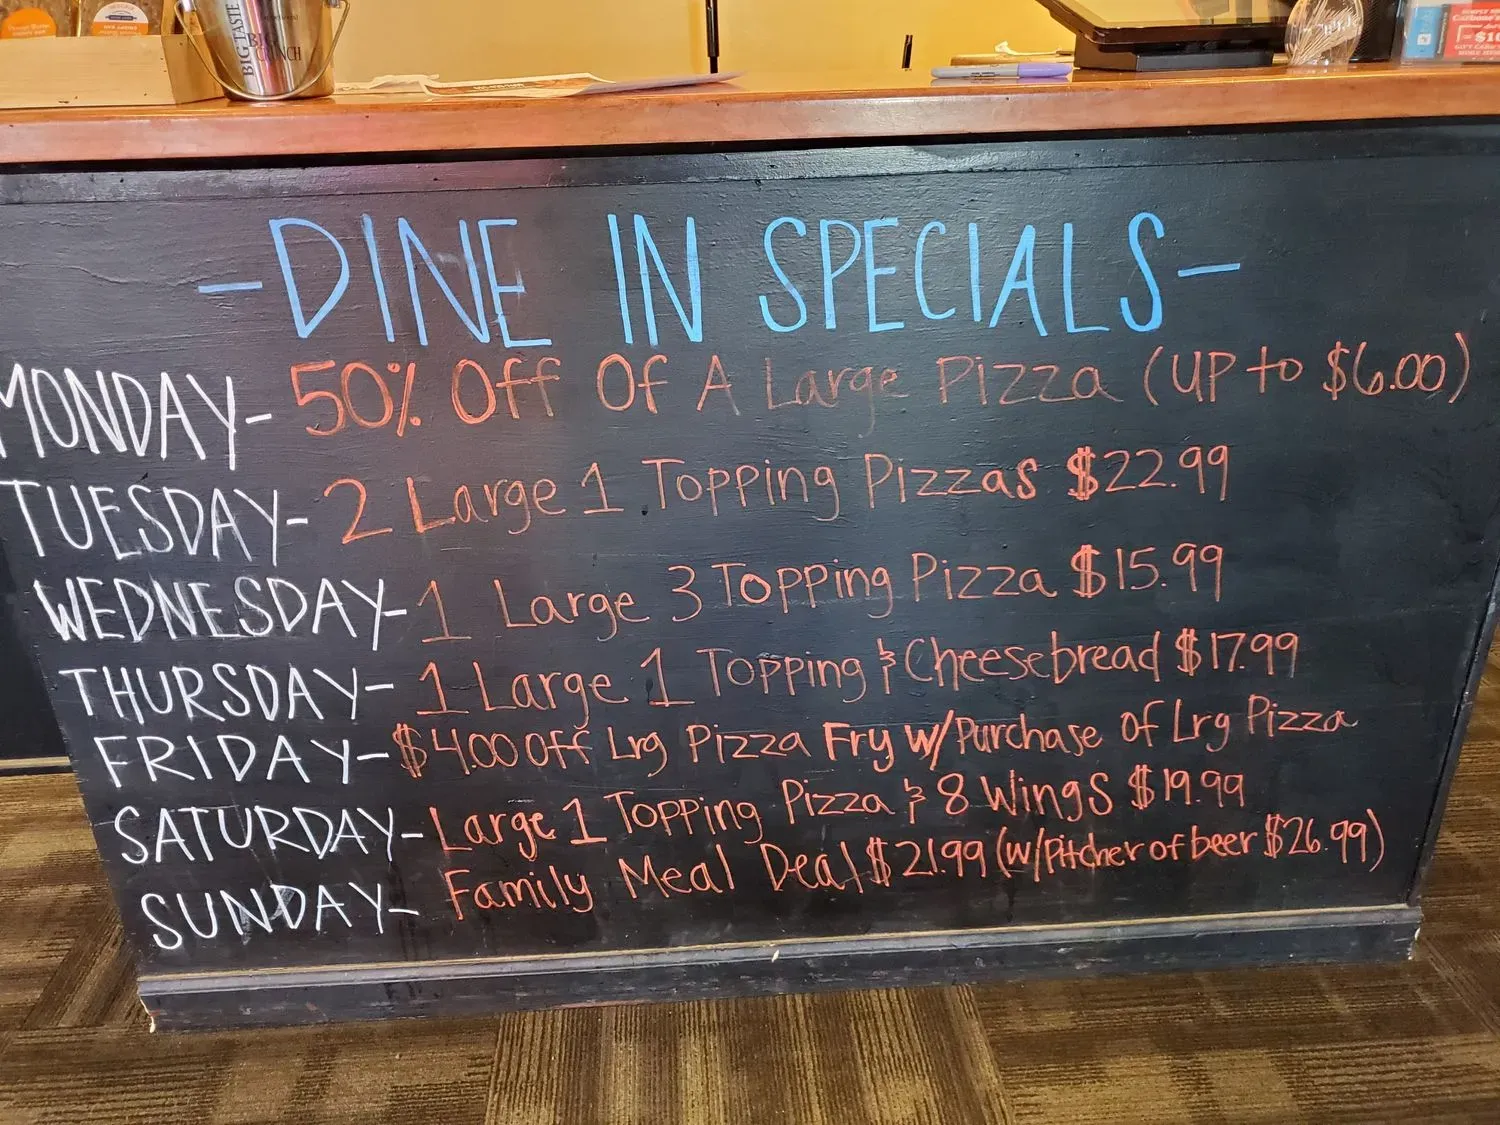 BIG TASTE
BIG CRUNCH
-DINE IN SPECIALS-
MONDAY- 50% Off Of A Large Pizza (UP to $6.00)
TUESDAY- 2 Large 1 Topping Pizzas $22.99
WEDNESDAY- 1 Large 3 Topping Pizza $15.99
THURSDAY- 1 Large 1 Topping & Cheesebread $17.99
FRIDAY- $4.00 Off Lrg Pizza Fry w/Purchase of Lrg Pizza
SATURDAY- Large 1 Topping Pizza & 8 Wings $19.99
SUNDAY- Family Meal Deal $21.99 (w/Pitcher of beer $26.99)